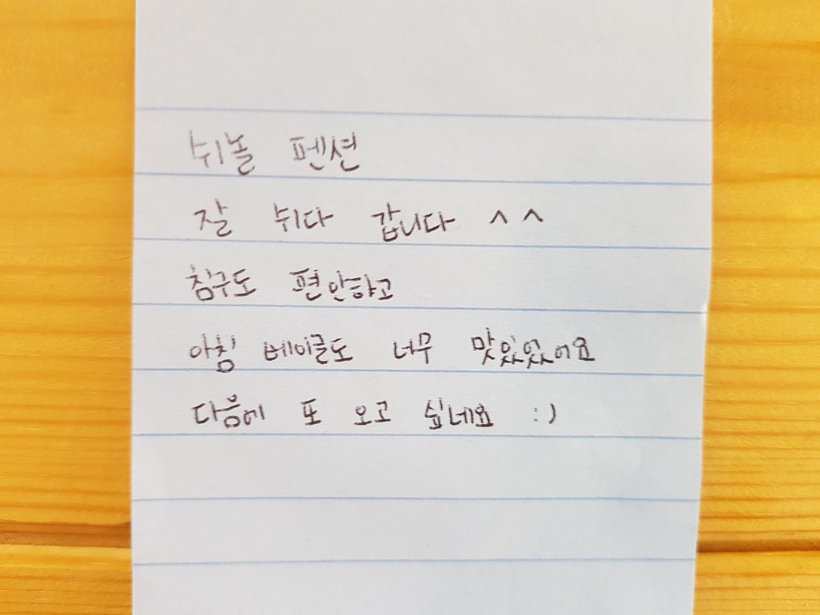 쉬놀 펜션
잘 쉬다 갑니다 ^^
침구도 편안하고
아침 베이글도 너무 맛있있어요
다음에 또 오고 싶네요 :)